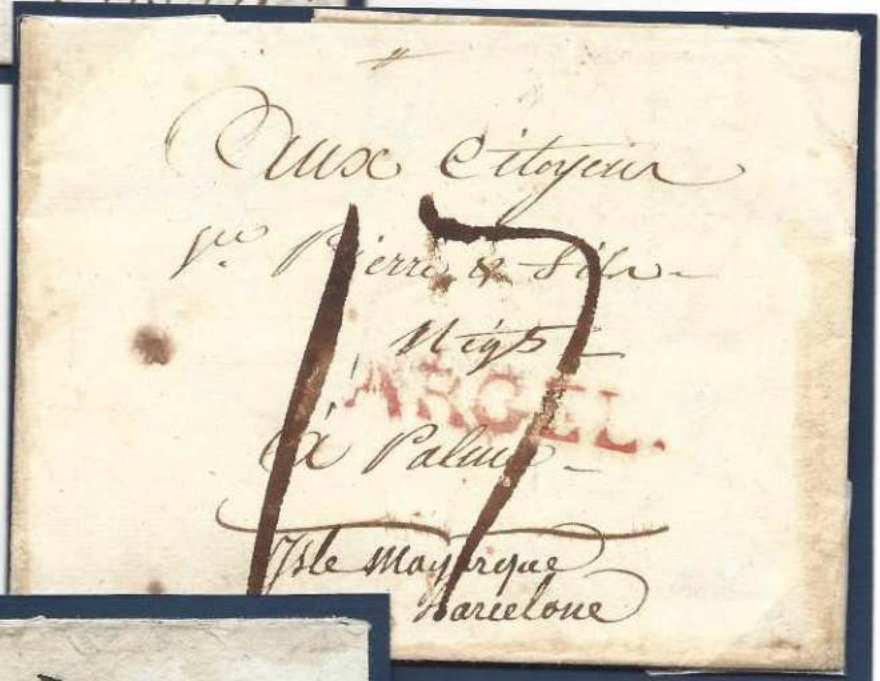 Aux Citoyens
Vve Pierre & fils
Négts
ARGEL.
à Palma
Isle Mayorque
Barcelone
17